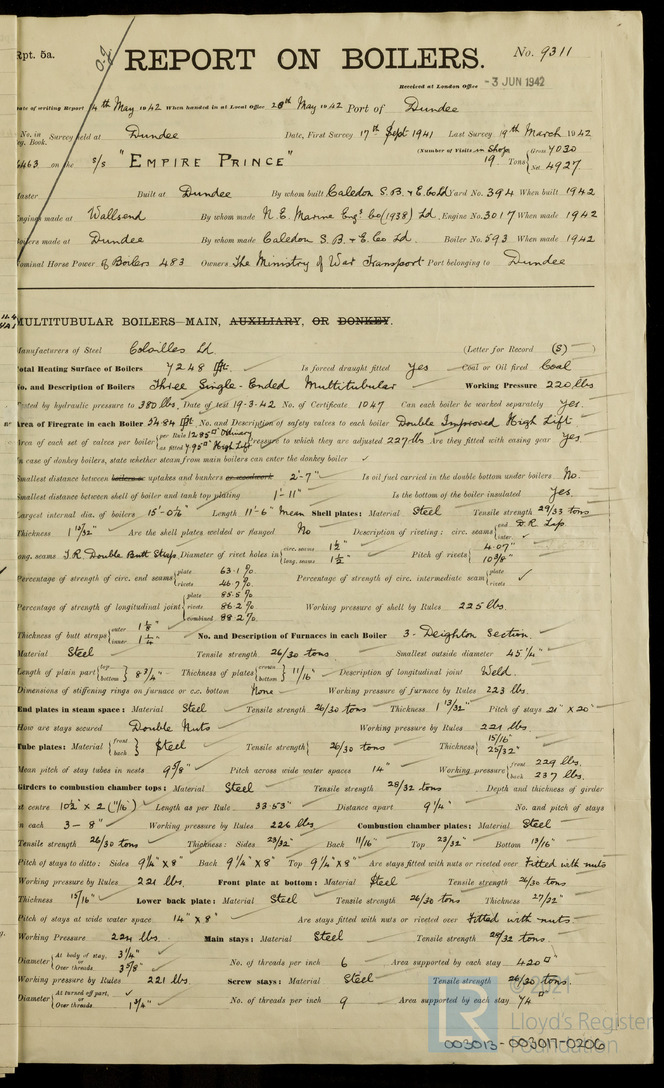 Rpt. 5a.
REPORT ON BOILERS.
No. 9311
Received at London Office - 3 JUN 1942
Date of writing Report th May 1942 When handed in at Local Office 20th May 1942 Port of Dundee
No. in Survey held at Dundee Date, First Survey 17th Sept 1941 Last Survey 19th March 1942
Reg. Book. (Number of Visits in Shop 19
on the S/S "EMPIRE PRINCE" Tons {Gross 7030 Net 4927
Master Built at Dundee By whom built Caledon S.B. & E. Co Ld Yard No. 394 When built 1942
Engines made at Wallsend By whom made N.E. Marine Engs Co (1938) Ld. Engine No. 3017 When made 1942
Boilers made at Dundee By whom made Caledon S.B. & E. Co Ld. Boiler No. 593 When made 1942
Nominal Horse Power of Boilers 483 Owners The Ministry of War Transport Port belonging to Dundee
MULTITUBULAR BOILERS MAIN, AUXILIARY, OR DONKEY.
Manufacturers of Steel Colvilles Ld. (Letter for Record (S) )
Total Heating Surface of Boilers 7248 Is forced draught fitted yes Coal or Oil fired Coal
No. and Description of Boilers Three Single-Ended Multitubular Working Pressure 220 lbs
Tested by hydraulic pressure to 380 lbs. Date of test 19-3-42 No. of Certificate 1047 Can each boiler be worked separately yes.
Area of Firegrate in each Boiler 54.84 No. and Description of safety valves to each boiler Double Improved High Lift
Area of each set of valves per boiler {per Rule 12.85 Ordinary as fitted 7.95 High Lift Pressure to which they are adjusted 227 lbs Are they fitted with easing gear yes
In case of donkey boilers, state whether steam from main boilers can enter the donkey boiler ✓
Smallest distance between boilers or uptakes and bunkers or woodwork 2'-7" Is oil fuel carried in the double bottom under boilers No.
Smallest distance between shell of boiler and tank top plating 1'-11" Is the bottom of the boiler insulated yes.
Largest internal dia. of boilers 15'-0 Length 11'-6" Mean Shell plates: Material Steel Tensile strength 29/33 tons
Thickness 1 13/32" Are the shell plates welded or flanged No Description of riveting: circ. seams {end D.R. Lap inter. ✓
long. seams T.R. Double Butt Straps Diameter of rivet holes in {circ. seams 1½" long. seams 1½" Pitch of rivets {4.07" 10 3/8"
Percentage of strength of circ. end seams {plate 63.1 % rivets 46.7 % Percentage of strength of circ. intermediate seam {plate rivets ✓
Percentage of strength of longitudinal joint {plate 85.5 % rivets 86.2 % combined 88.2 % Working pressure of shell by Rules 225 lbs.
Thickness of butt straps {outer 1 1/8" inner 1 1/4" No. and Description of Furnaces in each Boiler 3 - Deighton Section.
Material Steel Tensile strength 26/30 tons Smallest outside diameter 45 1/4"
Length of plain part {top bottom} 8 3/4" Thickness of plates {crown bottom} 11/16" Description of longitudinal joint Weld.
Dimensions of stiffening rings on furnace or c.c. bottom None Working pressure of furnace by Rules 223 lbs.
End plates in steam space: Material Steel Tensile strength 26/30 tons Thickness 1 13/32" Pitch of stays 21" x 20"
How are stays secured Double Nuts Working pressure by Rules 221 lbs.
Tube plates: Material {front back} Steel Tensile strength { 26/30 tons Thickness {15/16" 25/32"
Mean pitch of stay tubes in nests 9 5/8" Pitch across wide water spaces 14" Working pressure {front 229 lbs. back 237 lbs.
Girders to combustion chamber tops: Material Steel Tensile strength 28/32 tons Depth and thickness of girder
at centre 10½" x 2 (11/16") Length as per Rule 33.53" Distance apart 9 1/4" No. and pitch of stays
in each 3 - 8" Working pressure by Rules 226 lbs Combustion chamber plates: Material Steel
Tensile strength 26/30 tons Thickness: Sides 23/32" Back 11/16" Top 23/32" Bottom 13/16"
Pitch of stays to ditto: Sides 9 1/4" x 8" Back 9 1/4" x 8" Top 9 1/4" x 8" Are stays fitted with nuts or riveted over Fitted with nuts
Working pressure by Rules 221 lbs. Front plate at bottom: Material Steel Tensile strength 26/30 tons
Thickness 15/16" Lower back plate: Material Steel Tensile strength 26/30 tons Thickness 27/32"
Pitch of stays at wide water space 14" x 8" Are stays fitted with nuts or riveted over Fitted with nuts.
Working Pressure 224 lbs. Main stays: Material Steel Tensile strength 28/32 tons
Diameter {At body of stay, 3 1/4" or Over threads 3 5/8" No. of threads per inch 6 Area supported by each stay 420
Working pressure by Rules 221 lbs Screw stays: Material Steel Tensile strength 26/30 tons.
Diameter {At turned off part, ✓ or Over threads 1 3/4" No. of threads per inch 9 Area supported by each stay 74
© 2021
LR Lloyd's Register Foundation
003013-003017-0206